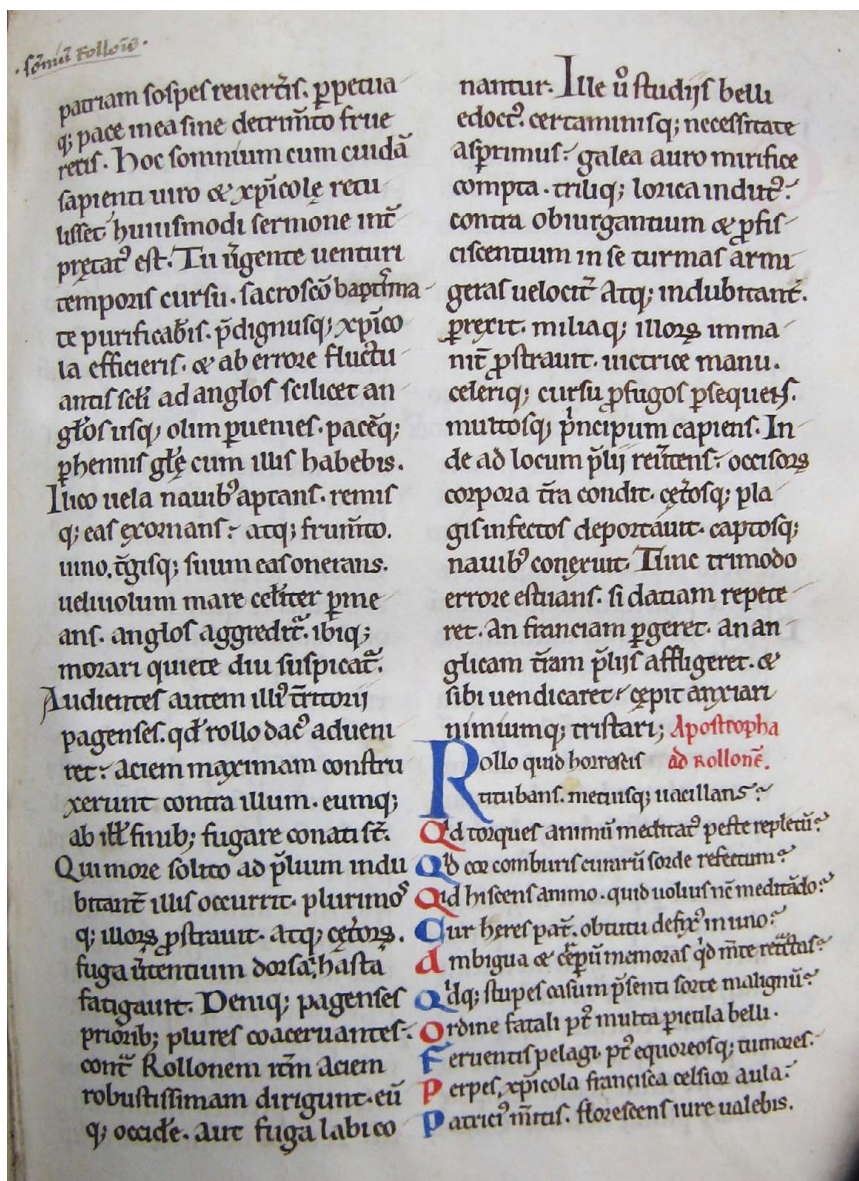 patriam sospes reuert̄is. ꝑpetua
q; pace mea sine detrim̄to frue
retis. Hoc somnium cum cuidā
sapienti uiro & xp̄icolę retu
lisset huiusmodi sermone int̄
pretatꝰ est. Tu ūgente uenturi
temporis cursu. sacrosc̄o baptis̄ma
te purificab̄is. p̄dignusq; xp̄ico
la efficieris. & ab errore fluctu
antis sc̄li ad anglos scilicet an
gl̄os usq; olim ꝑuenies. pacēq;
ꝑhennis gl̄ę cum illis habebis.
Ilico uela nauibꝰ aptans. remis
q; eas exornans. atq; frum̄to.
uino. t̄gisq; suum eas onerans.
ueliuolum mare cel̄iter ꝑme
ans. anglos aggredit̄. ibiq;
morari quiete diu suspicat̄.
Audientes autem illiꝰ t̄ritorij
pagenses. qd̄ rollo dacꝰ adueni
ret. aciem maximam constru
xerunt contra illum. eumq;
ab ill̄ finib; fugare conati st̄.
Qui more solito ad p̄lium indu
bitant̄ illis occurrit. plurimoꝰ
q; illoꝝ ꝓstrauit. atq; cęt̄oꝝ.
fuga ūtentium dorsa, hasta
fatigauit. Deniq; pagenses
priorib; plures coaceruantes.
cont̄ Rollonem it̄m aciem
robustissimam dirigunt. eū
q; occid̄e. aut fuga labi co
nantur. Ille ū studijs belli
edoctꝰ. certaminisq; necessitate
asprimus. galea auro mirifice
compta. triliq; lorica indutꝰ.
contra obiurgantium & ꝓfis
ciscentium in se turmas armi
geras uelocit̄ atq; indubitant̄.
ꝑrexit. miliaq; illoꝝ imma
nit̄ ꝓstrauit. uictrice manu.
celeriq; cursu ꝓfugos ꝑsequens.
multosq; p̄ncipum capiens. In
de ad locum p̄lij reūtens. occisoꝝ
corpora t̄ra condit. cęt̄osq; pla
gis infectos deportauit. captosq;
nauibꝰ congexuit. Tunc trimodo
errore estuans. si datiam repete
ret. an franciam ꝑgeret. an an
glicam t̄ram p̄lijs affligeret. &
sibi uendicaret. cępit anxiari
nimiumq; tristari; Apostropha
Rollo quid horrescis ad Rollonē.
titubans. metiusq; uacillans.
Qd torques animū meditatꝰ peste repletū.
Qd cor comburis curarū sorde refectum.
Qid hiscens animo. quid uoluis n̄c meditādo.
Cur hęres pat̄. obtutu defixꝰ in uno.
Ambigua & memoras qd m̄te
Qdq; stupes casum p̄senti sorte malignū.
Ordine fatali p̄t multa ꝑic̄ula belli.
Feruentis pelagi. p̄t equoreosq; tumores.
Perpes, xp̄icola francisca celsior aula.
Patriciꝰ m̄itis. florescens iure ualebis.